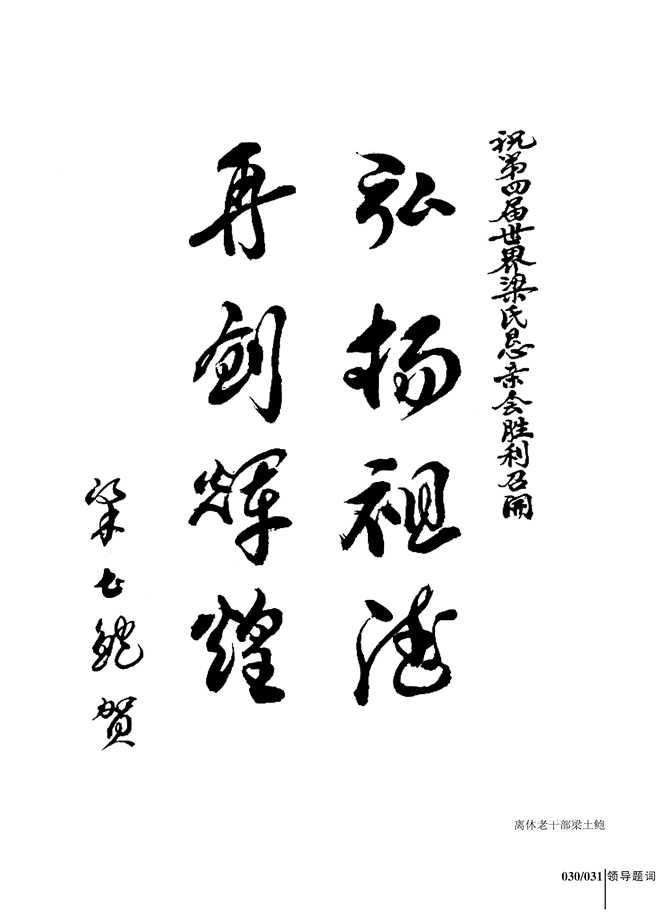 祝第四届世界梁氏恳亲会胜利召開
弘揚祖德
再創輝煌
梁土鲍賀
离休老干部梁土鲍
030/031 领导题词